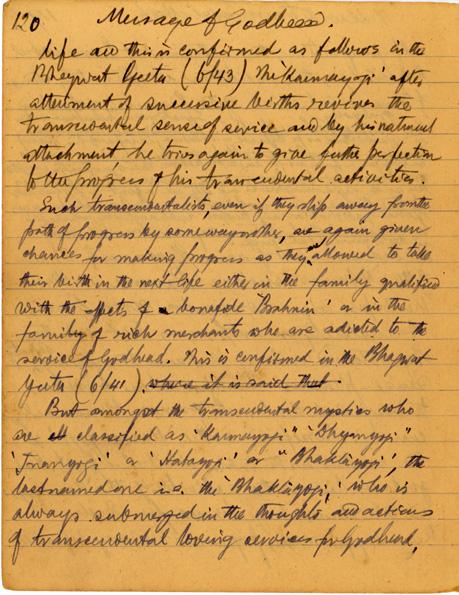 120 Message of Godhead.
life and this is confirmed as follows in the
Bhagwat Geeta (6/43) The 'Karmayogi' after
attenment of successive births revives the
transcendental sense of service and by his natural
attachment he tries again to give further perfection
to the progress of his transcendental activities.
Such transcendentalists, even if they slip away from the
path of progress by some way or other, are again given
chances for making progress as they are allowed to take
their birth in the next life either in the family qualified
with the effects of a bonafide 'Brahmin' or in the
family of rich merchants who are adicted to the
service of Godhead. This is confirmed in the Bhagwat
Geeta (6/41) where it is said that
But amongst the transcendental mystics who
are all classified as 'Karmayogi' 'Dhyanyogi'
'Jnanyogi' or 'Hatayogi' or 'Bhaktiyogi', the
last named one i.e. the 'Bhaktiyogi,' who is
always submerged in the thoughts and actions
of transcendental loving services for Godhead,